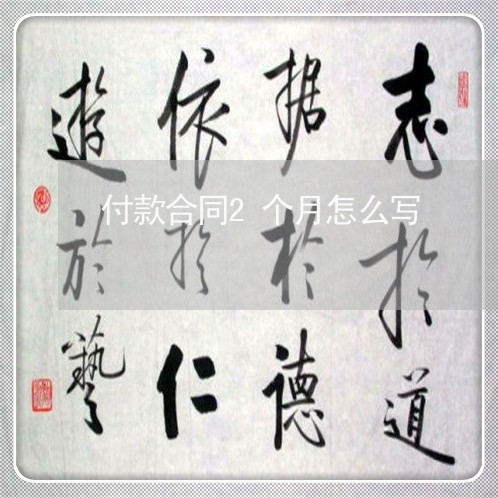 志於道
据於德
依於仁
遊於藝
付款合同2 个月怎么写